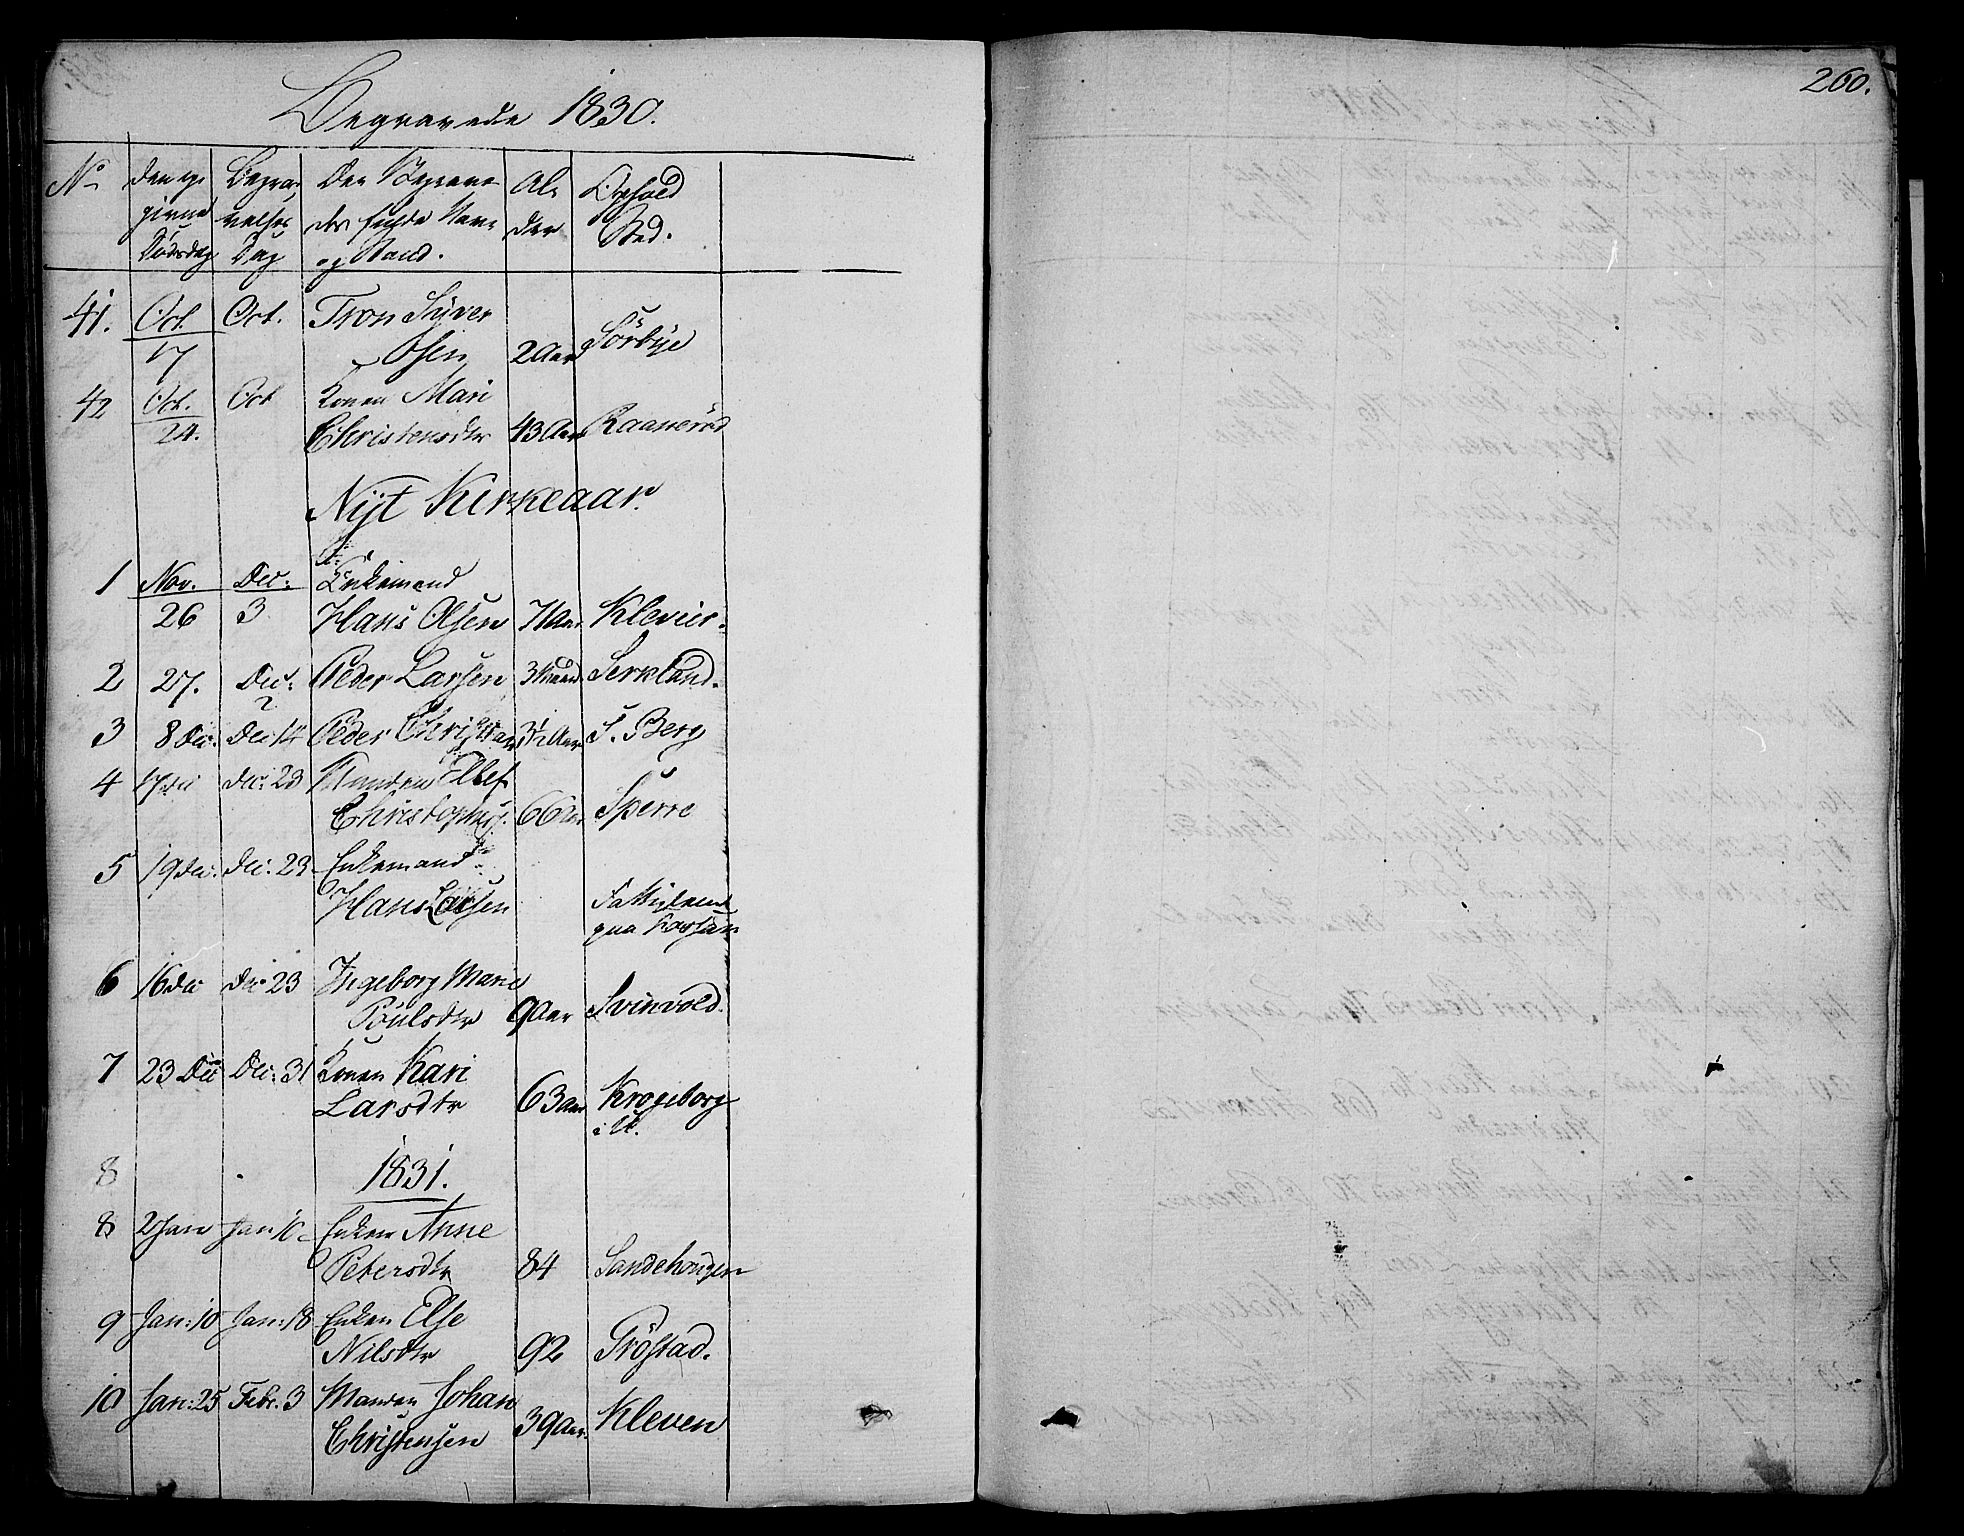 260.
Begravede 1830.
No den op- Begra- Der Begrave- Al- Ophold
givne velses des fulde Navn der Sted.
Dödsdag Dag og Stand.
41. Oct. Oct. Tron Syver
17 Olsen 2 Aar Sörbye
42 Oct. Oct Konen Mari
24. Christensdtr 43 Aar Raanerød
Nyt Kirkeaar.
1 Nov. Dec: Enkemand
26 3 Hans Olsen 71 Aar Klevier.
2 27. Dec: Peder Larsen 3 Maand Serkland.
3 8 Dec: Dec 14 Peder Christian 3½ Aar S. Berg
4 17 Dec Dec: 23 Manden Ellef
Christophers. 66 Aar Sperre
5 19 Dec: Dec: 23 Enkemand
Hans Larsen
6 16 Dec Dec 23 Ingeborg Marie
Poulsdtr 9 Aar Svinvold.
7 23 Dec Dec: 31 Konen Kari
Larsdtr 63 Aar Krogeborg
8 1831.
8 2 Jan Jan 10 Enken Anne
Petersdtr 84 Sandehougen
9 Jan: 10 Jan: 18 Enken Else
Nilsdtr 92 Tröstad.
10 Jan: 25 Febr. 3 Manden Johan
Christensen 39 Aar. Kleven